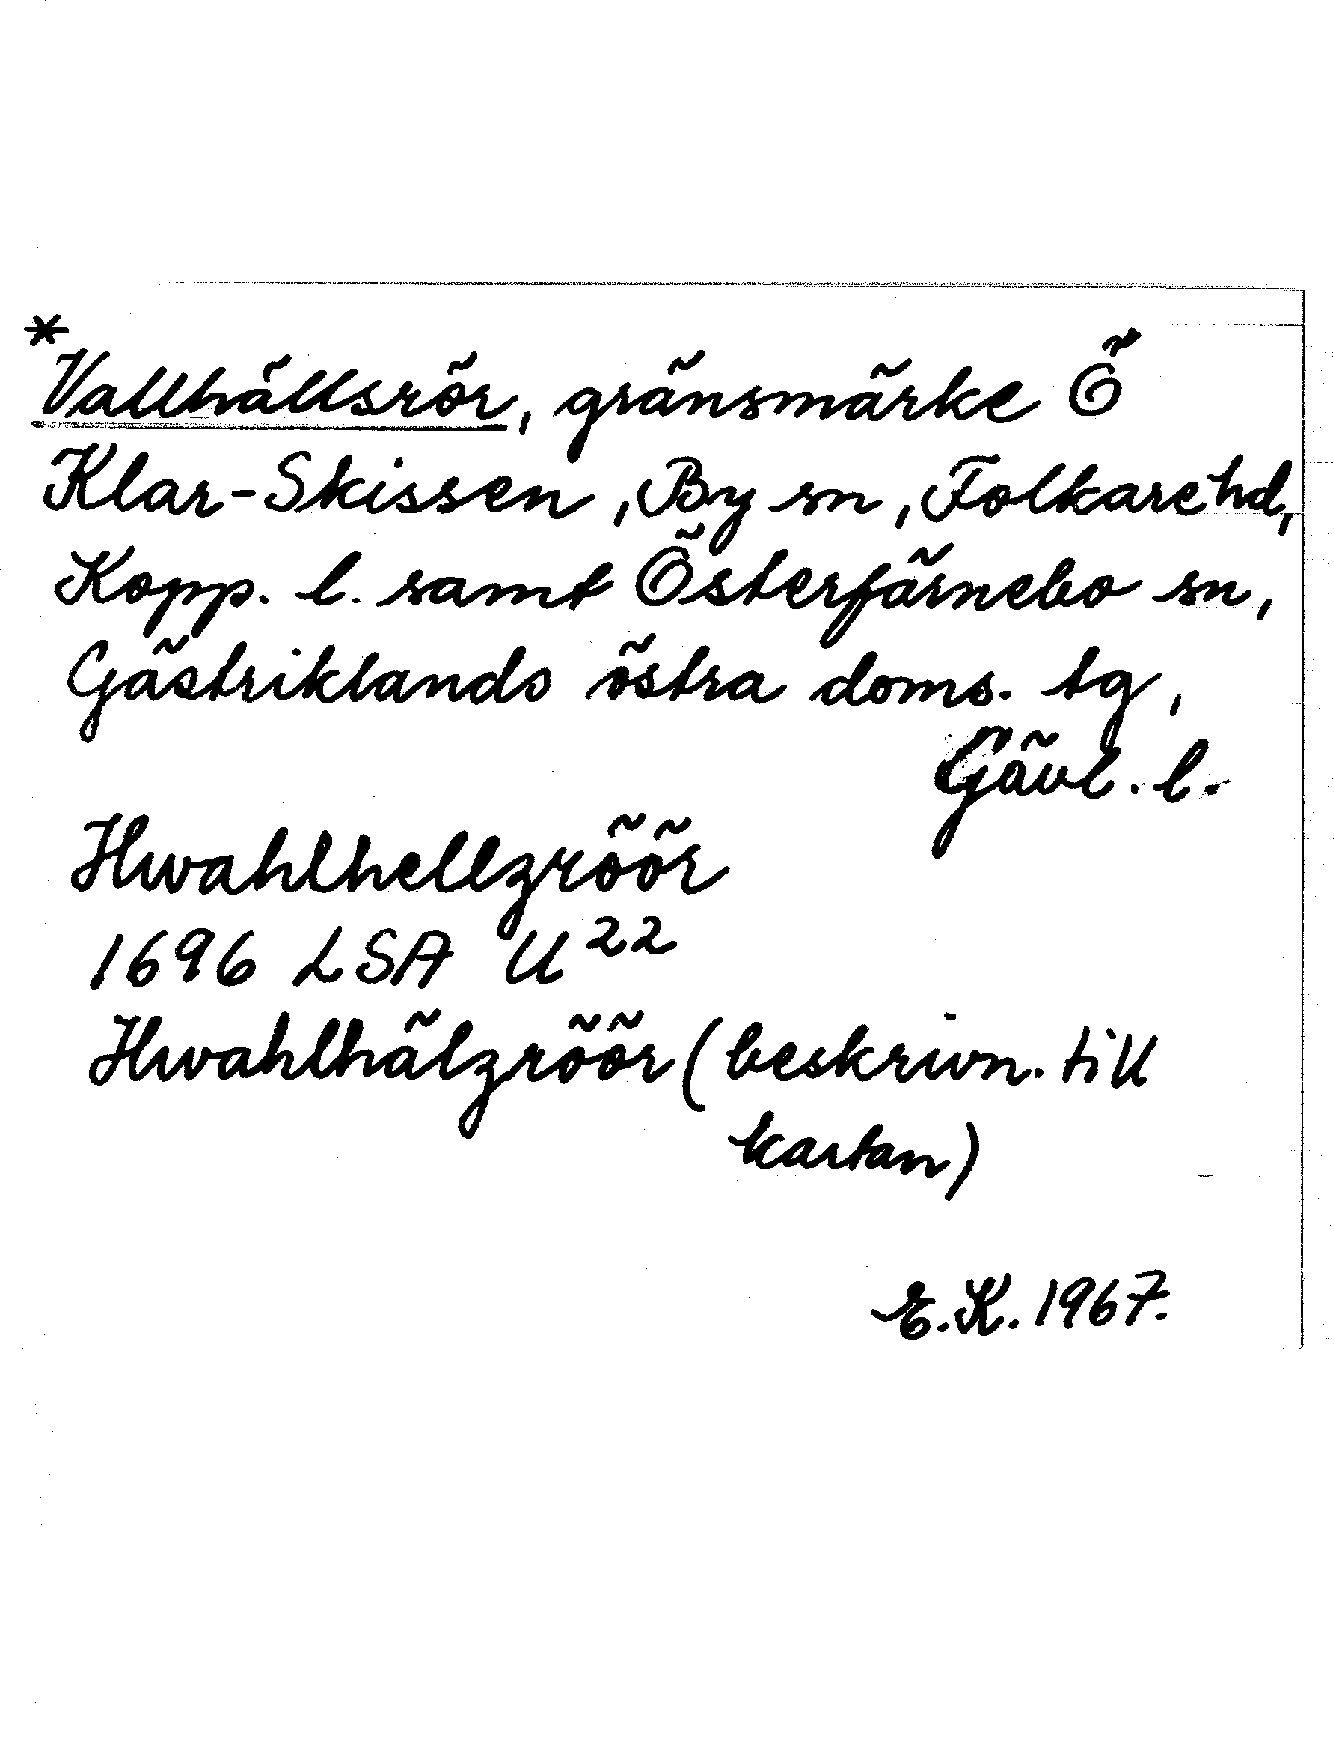 *
Vallhällsrör, gränsmärke Ö
Klar-Skissen, By sn, Folkare hd,
Kopp. l. samt Österfärnebo sn,
Gästriklands östra doms. tg,
Gävl. l.
Hwahlhellzröör
1696 LSA U 22
Hwahlhälzröör (beskrivn. till
kartan)
E.K. 1967.